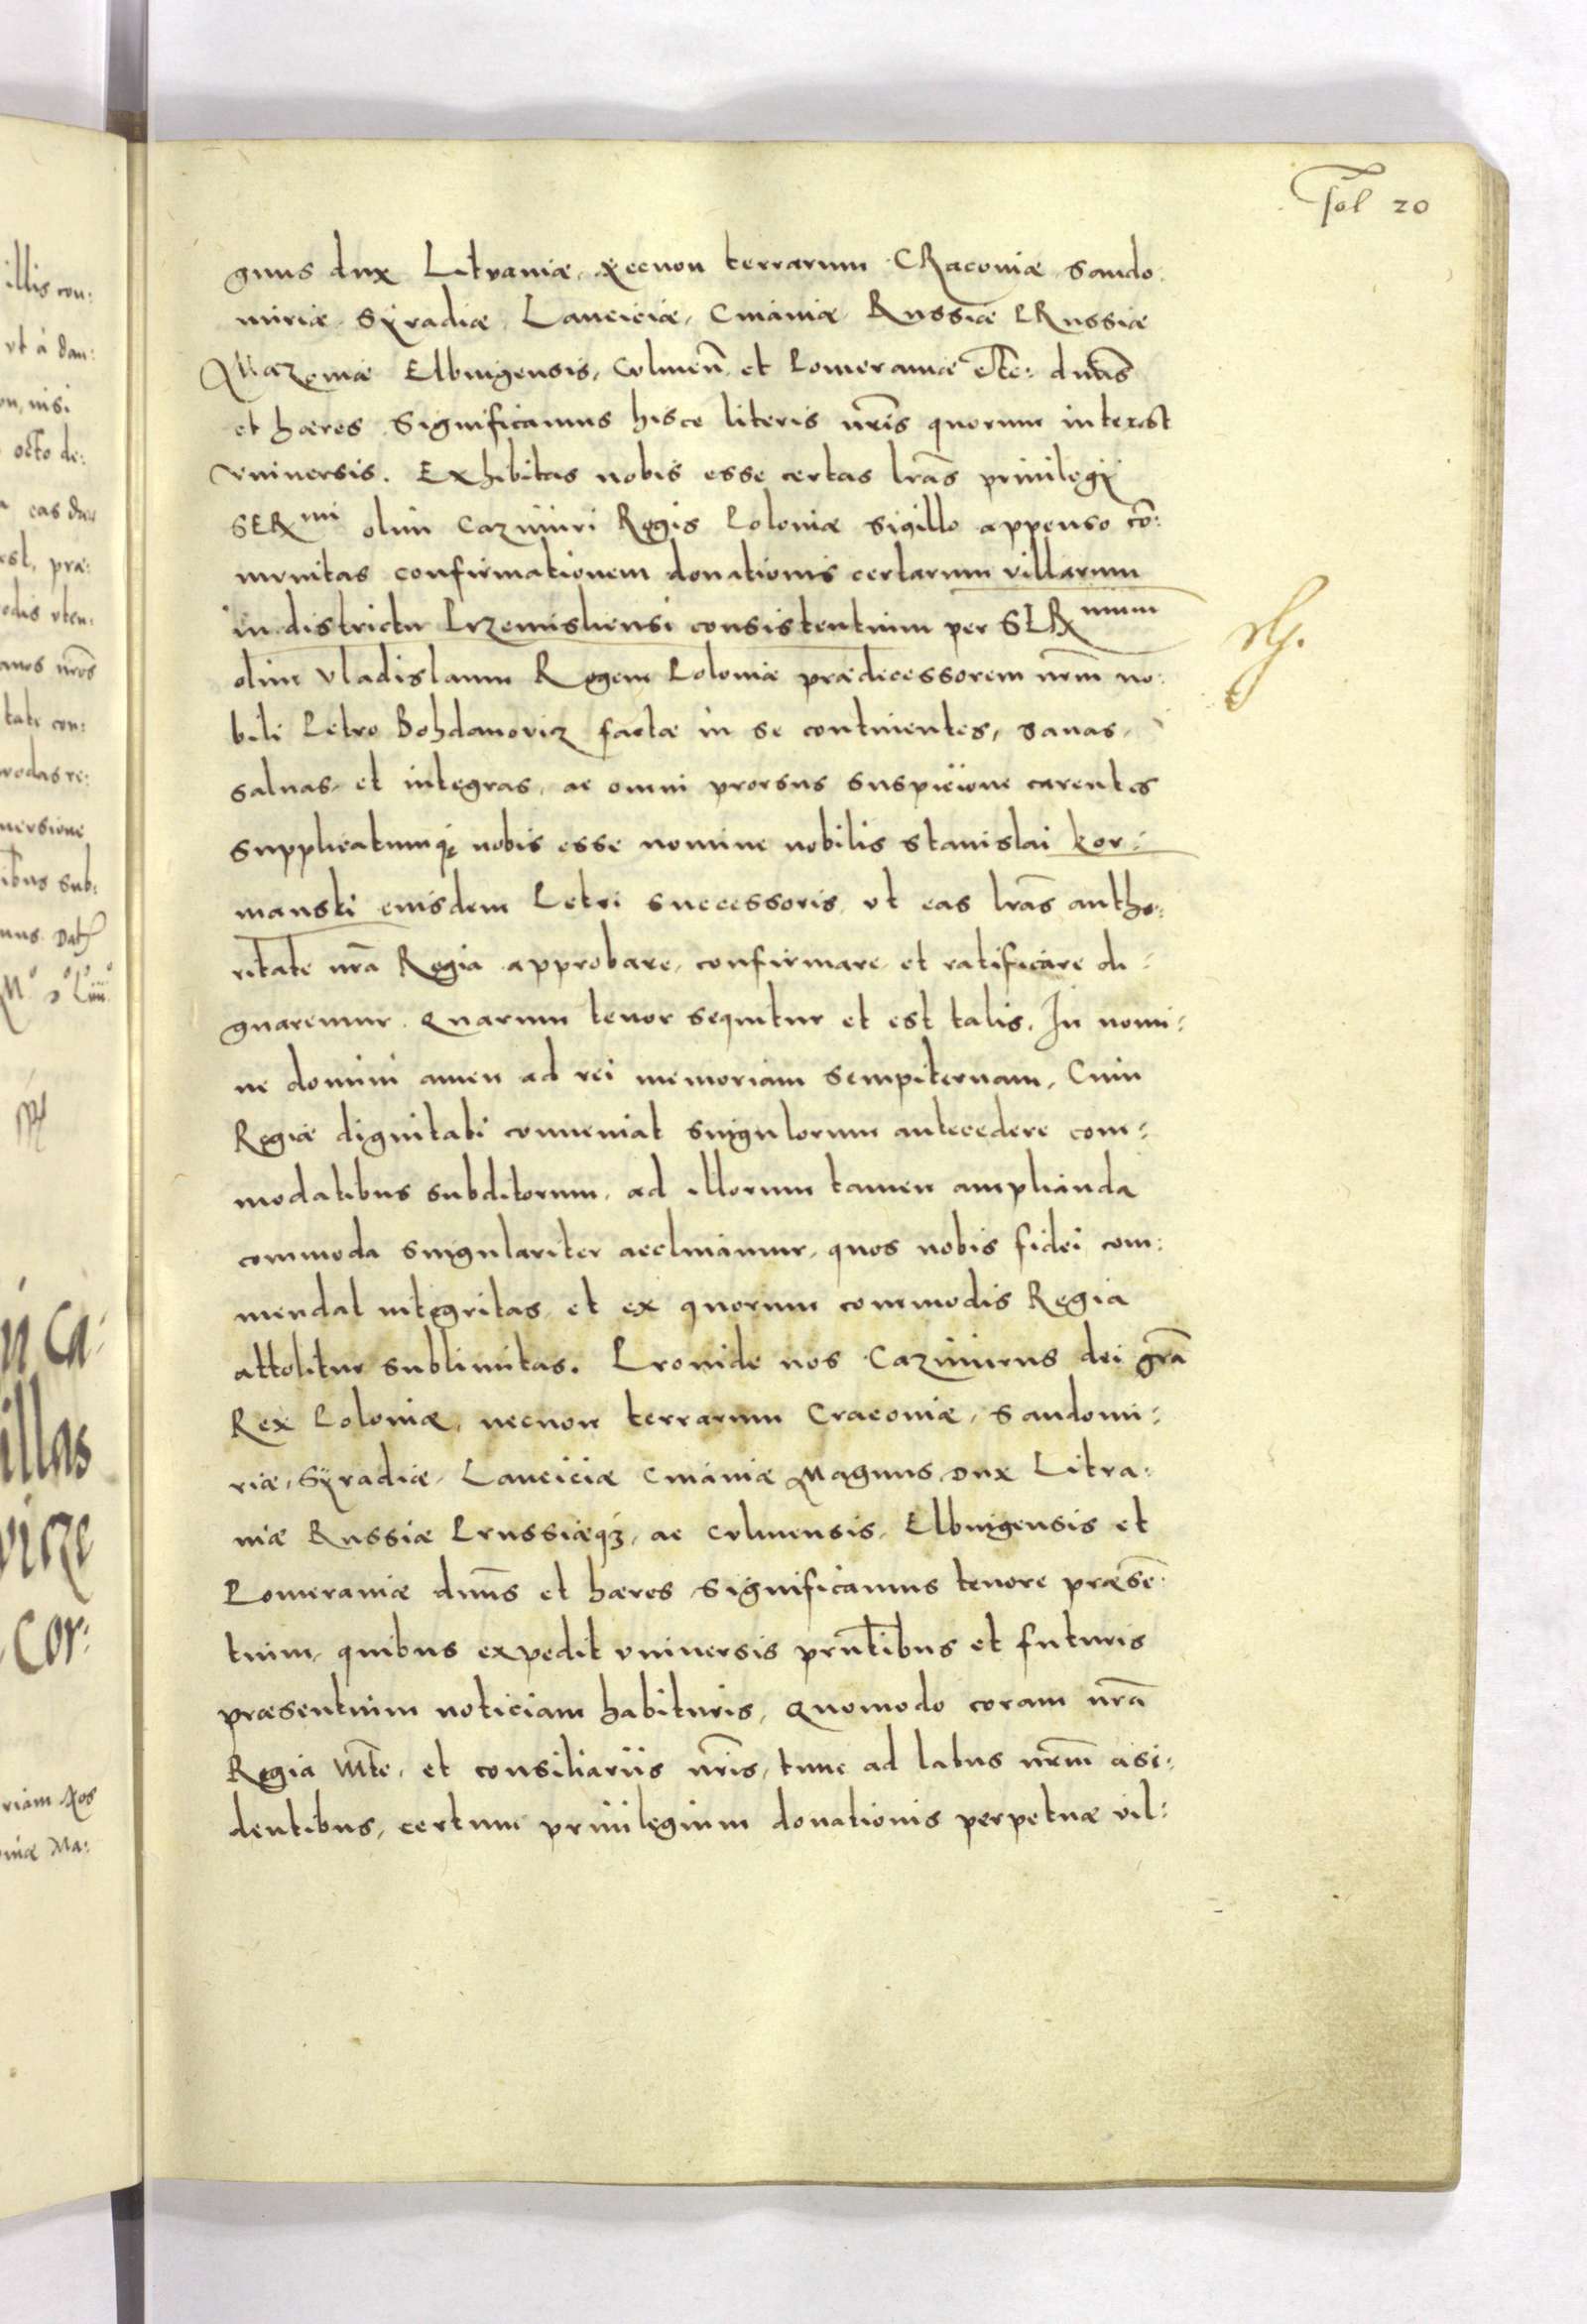 fol 20
gnus dux Litvaniæ, Necnon terrarum CRacoviæ Sando:
miriæ Syradiæ, Lanciciæ, Cuiaviæ Russiæ PRussiæ
Mazoviæ Elbingensis, Culmeñ, et Pomeraniæ etc̃: dn̄us
et hæres Significamus hisce literis nr̄is quorum interest
vniversis. Exhibitas nobis esse certas lrās priuilegij
SERmi olim Cazimiri Regis Poloniæ sigillo appenso cō:
munitas confirmationem donationis certarum villarum
in districtu Przemisliensi consistentium per SERmum
olim Vladislaum Regem Poloniæ prædecessorem nrm̄ no:
bili Petro Bohdanovicz factæ in se continentes, sanas,
saluas, et integras, ac omni prorsus suspicione carentes
supplicatumqȝ nobis esse nomine nobilis Stanislai Kor:
manski eiusdem Petri successoris, vt eas lrās autho:
ritate nrā Regia approbare, confirmare et ratificare di:
gnaremur. Quarum tenor sequitur et est talis. In nomi:
ne domini amen ad rei memoriam sempiternam, Cum
Regiæ dignitati conueniat singulorum antecedere com:
modatibus subditorum, ad illorum tamen amplianda
commoda singulariter acclinamur, quos nobis fidei com:
mendat integritas et ex quorum commodis Regia
attolitur sublimitas. Prouide nos Cazimirus dei grā
Rex Poloniæ, necnon terrarum Cracoviæ, Sandomi:
riæ, Syradiæ, Lanciciæ Cuiaviæ Magnus Dux Litva:
niæ Russiæ Prussiæqȝ, ac Culmensis, Elbingensis et
Pomeraniæ dn̄us et hæres Significamus tenore præsen̄:
tium, quibus expedit vniversis prn̄tibus et futuris
præsentium noticiam habituris, Quomodo coram nrā
Regia Mt̄e, et consiliariis nr̄is, tunc ad latus nrm̄ asi:
dentibus, certum priuilegium donationis perpetuæ vil:
illis con:
vt à dan:
on, nisi
octo de:
eas
est, præ:
odis vten:
nrōs
tati con:
modas re:
nersione
ibus sub:
mus Dat
n Ca:
illas
vicze
Cor:
riam Nos
oniæ Ma: